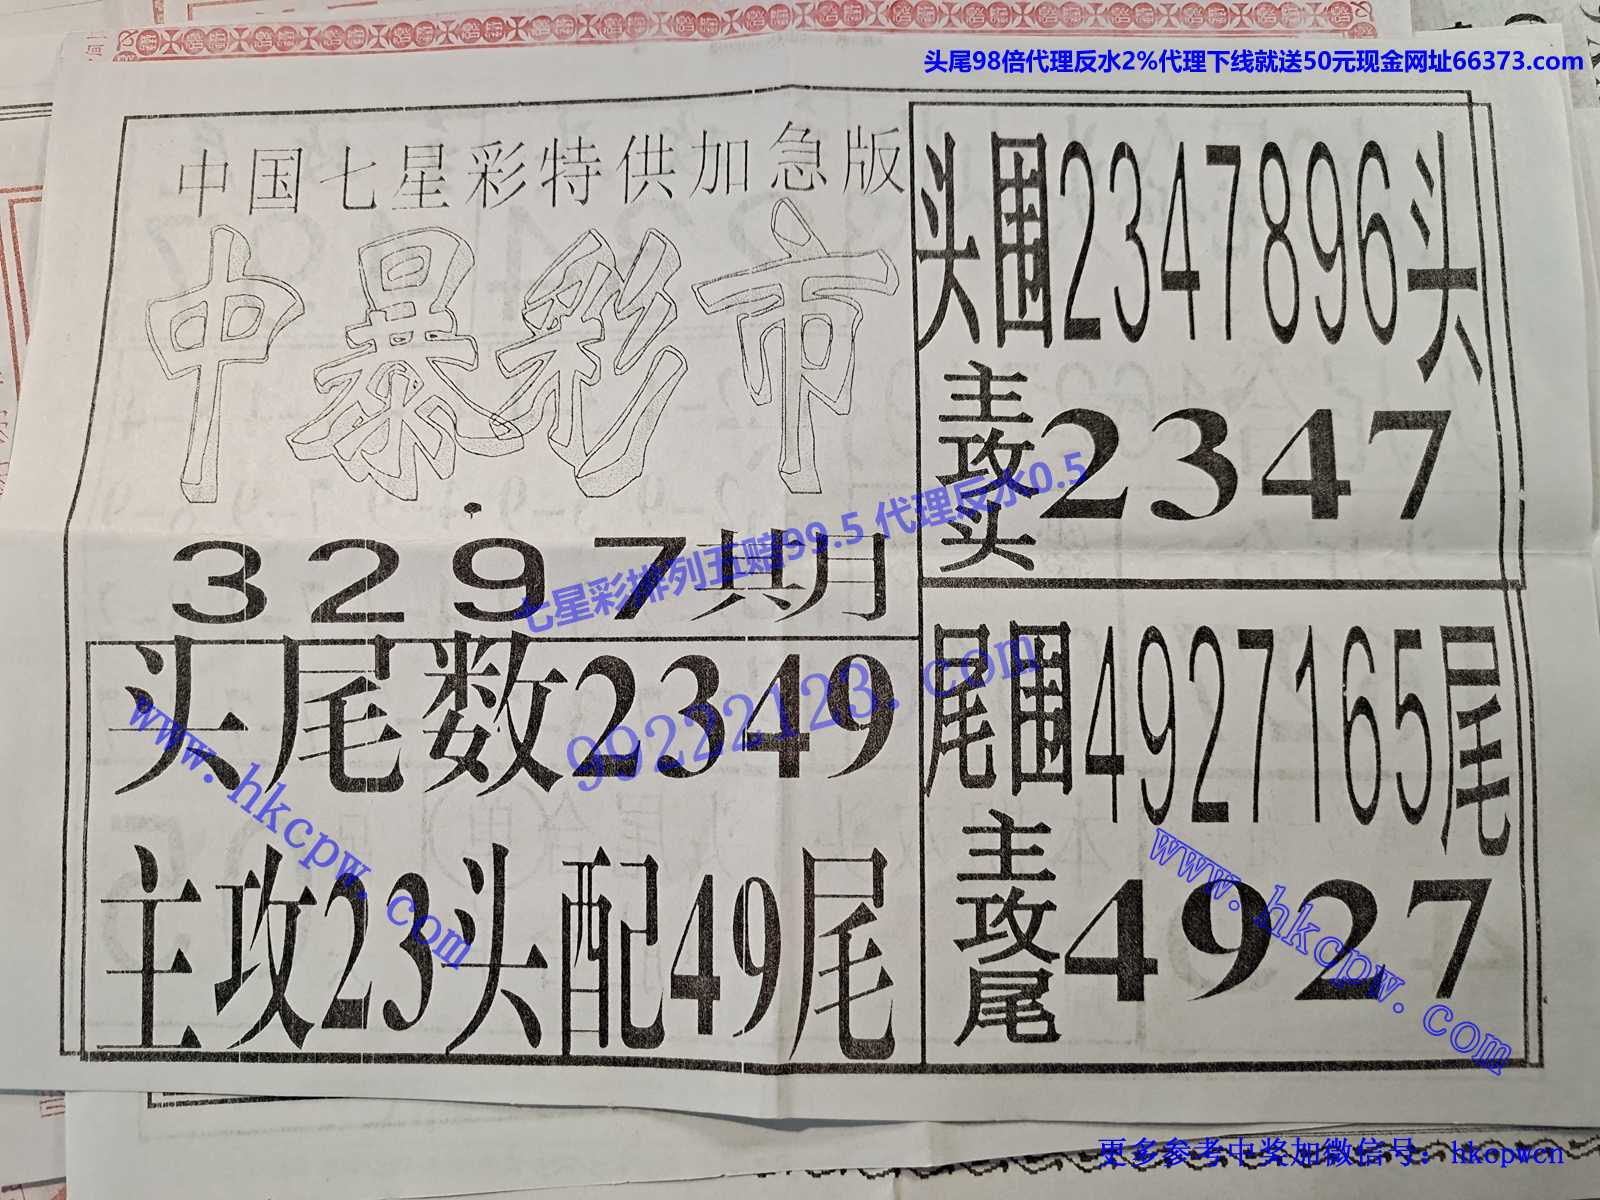 头尾98倍代理反水2%代理下线就送50元现金网址66373.com
中国七星彩特供加急版
中暴彩市
3297期
头尾数2349
主攻23头配49尾
头围2347896头
主攻头2347
尾围4927165尾
主攻尾4927
七星彩排列五赔99.5 代理反水0.5
99222123.com
www.hkcpw.com
www.hkcpw.com
更多参考中奖加微信号:hkcpwcn